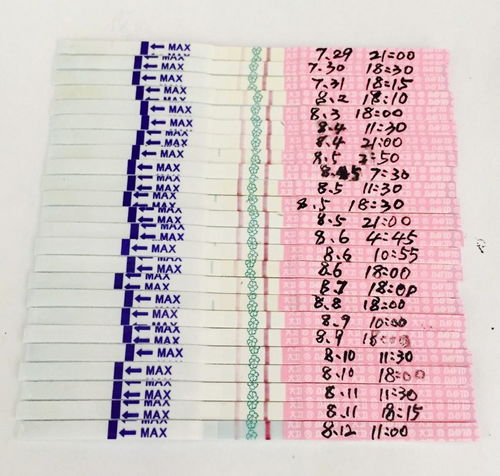 MAX 7.29 21:00
MAX 7.30 18:30
MAX 7.31 18:15
MAX 8.2 18:10
MAX 8.3 18:00
MAX 8.4 11:30
MAX 8.4 21:00
MAX 8.5
MAX 7:30
MAX 8.5 11:30
MAX 8.5 18:30
MAX 8.5 21:00
MAX 8.6 4:45
MAX 8.6 10:55
MAX 8.6 18:00
MAX 8.7 18:00
MAX 8.8 18:00
MAX 8.9 10:00
MAX 8.9
MAX 8.10 11:30
MAX 8.10 18:00
MAX 8.11 11:30
MAX 8.11 18:15
MAX 8.12 11:00